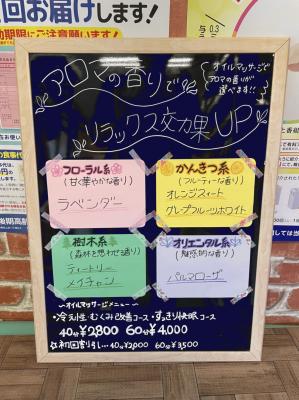 回お届けします!
ご注意願います!
アロマの香りで
オイルマッサージで
アロマの香りが
選べます!!
リラックス効果UP
フローラル系
(甘く華やかな香り)
ラベンダー
かんきつ系
(フルーティーな香り)
オレンジスイート
グレープフルーツホワイト
樹木系
(森林を思わせる香り)
ティートリー
メイチャン
オリエンタル系
(魅惑的な香り)
パルマローザ
~オイルマッサージメニュー~
・冷え性・むくみ改善コース・すっきり快眠コース
40分¥2,800 60分¥4,000
☆初回割引し… 40分¥2,000 60分¥3,500